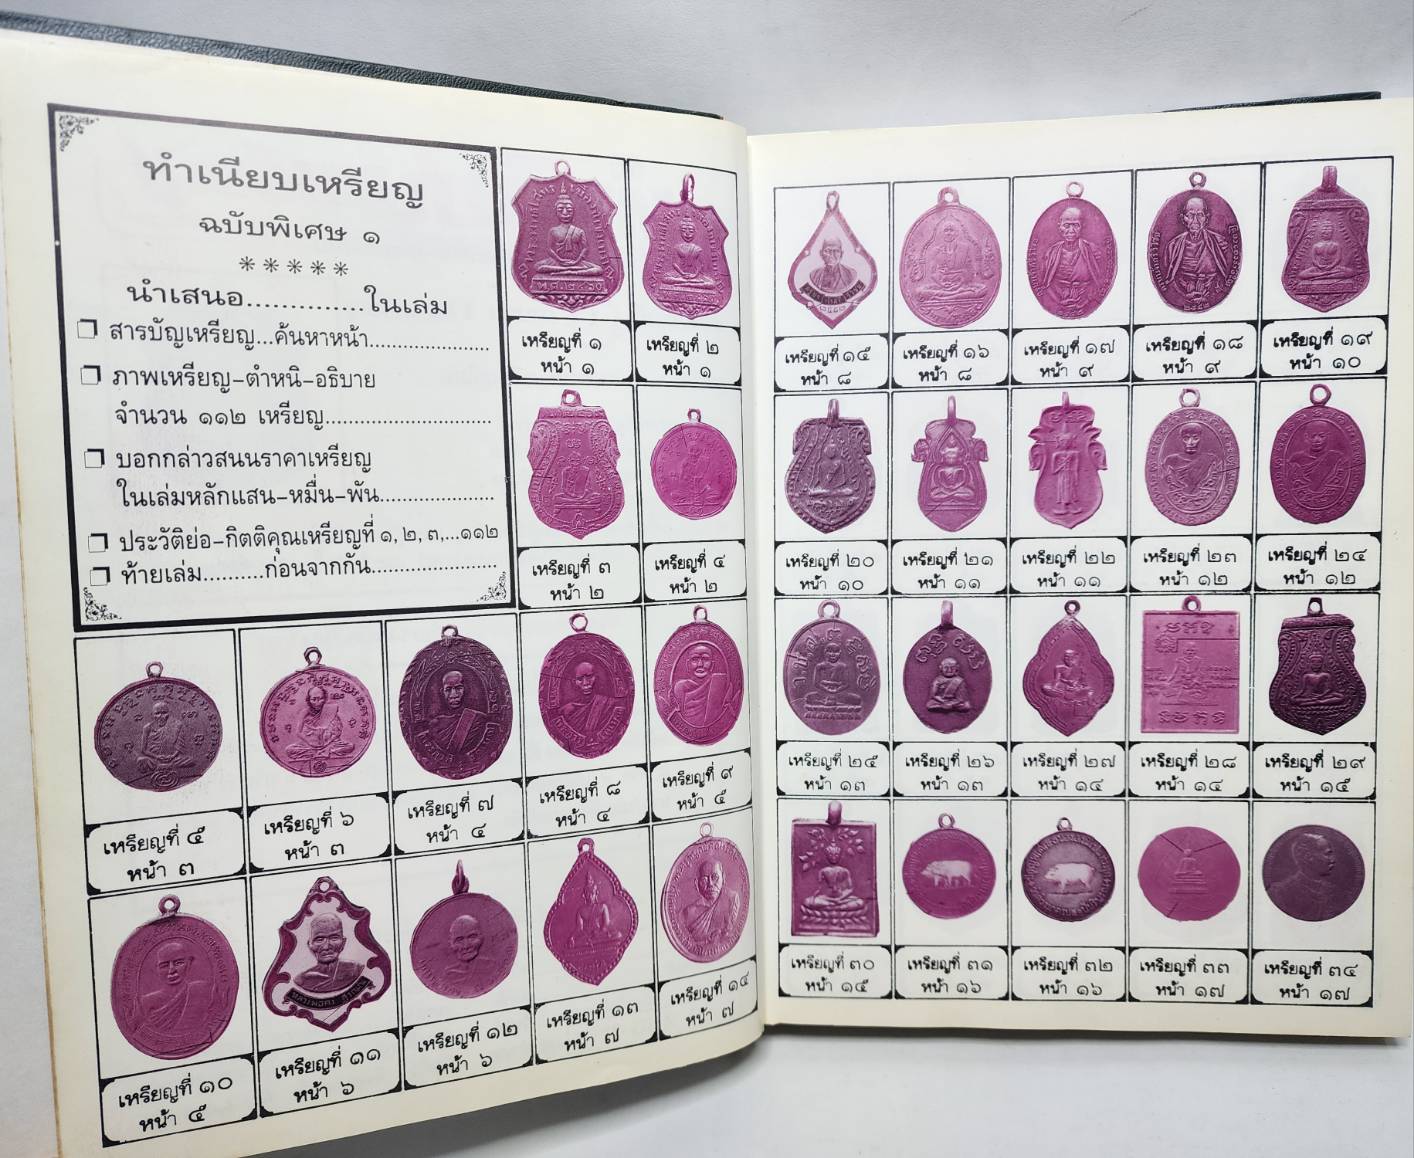 ทำเนียบเหรียญ
ฉบับพิเศษ ๑
*****
นำเสนอ..............ในเล่ม
สารบัญเหรียญ...ค้นหาหน้า.....................
ภาพเหรียญ-ตำหนิ-อธิบาย
จำนวน ๑๑๒ เหรียญ.............................
บอกกล่าวสนนราคาเหรียญ
ในเล่มหลักแสน-หมื่น-พัน....................
ประวัติย่อ-กิตติคุณเหรียญที่ ๑, ๒, ๓,...๑๑๒
ท้ายเล่ม..........ก่อนจากกัน......................
พ.ศ.๒๔๖๐
เหรียญที่ ๑
หน้า ๑
เหรียญที่ ๒
หน้า ๑
เหรียญที่ ๓
หน้า ๒
เหรียญที่ ๔
หน้า ๒
เหรียญที่ ๕
หน้า ๓
เหรียญที่ ๖
หน้า ๓
เหรียญที่ ๗
หน้า ๔
เหรียญที่ ๘
หน้า ๔
เหรียญที่ ๙
หน้า ๕
เหรียญที่ ๑๐
หน้า ๕
เหรียญที่ ๑๑
หน้า ๖
เหรียญที่ ๑๒
หน้า ๖
เหรียญที่ ๑๓
หน้า ๗
เหรียญที่ ๑๔
หน้า ๗
เหรียญที่ ๑๕
หน้า ๘
เหรียญที่ ๑๖
หน้า ๘
เหรียญที่ ๑๗
หน้า ๙
เหรียญที่ ๑๘
หน้า ๙
เหรียญที่ ๑๙
หน้า ๑๐
เหรียญที่ ๒๐
หน้า ๑๐
เหรียญที่ ๒๑
หน้า ๑๑
เหรียญที่ ๒๒
หน้า ๑๑
เหรียญที่ ๒๓
หน้า ๑๒
เหรียญที่ ๒๔
หน้า ๑๒
เหรียญที่ ๒๕
หน้า ๑๓
เหรียญที่ ๒๖
หน้า ๑๓
เหรียญที่ ๒๗
หน้า ๑๔
เหรียญที่ ๒๘
หน้า ๑๔
เหรียญที่ ๒๙
หน้า ๑๕
เหรียญที่ ๓๐
หน้า ๑๕
เหรียญที่ ๓๑
หน้า ๑๖
เหรียญที่ ๓๒
หน้า ๑๖
เหรียญที่ ๓๓
หน้า ๑๗
เหรียญที่ ๓๔
หน้า ๑๗